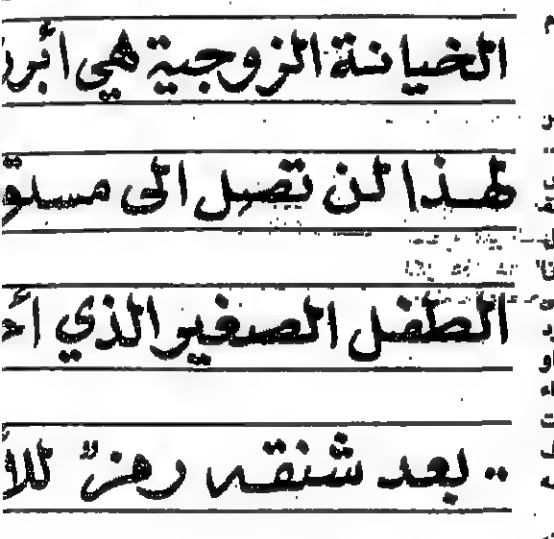 الخيانة الزوجية هي أبرز
لهذا لن تصل الى مستو
الطفل الصغير الذي أ
.. بعد شنقه رمزٌ للأ